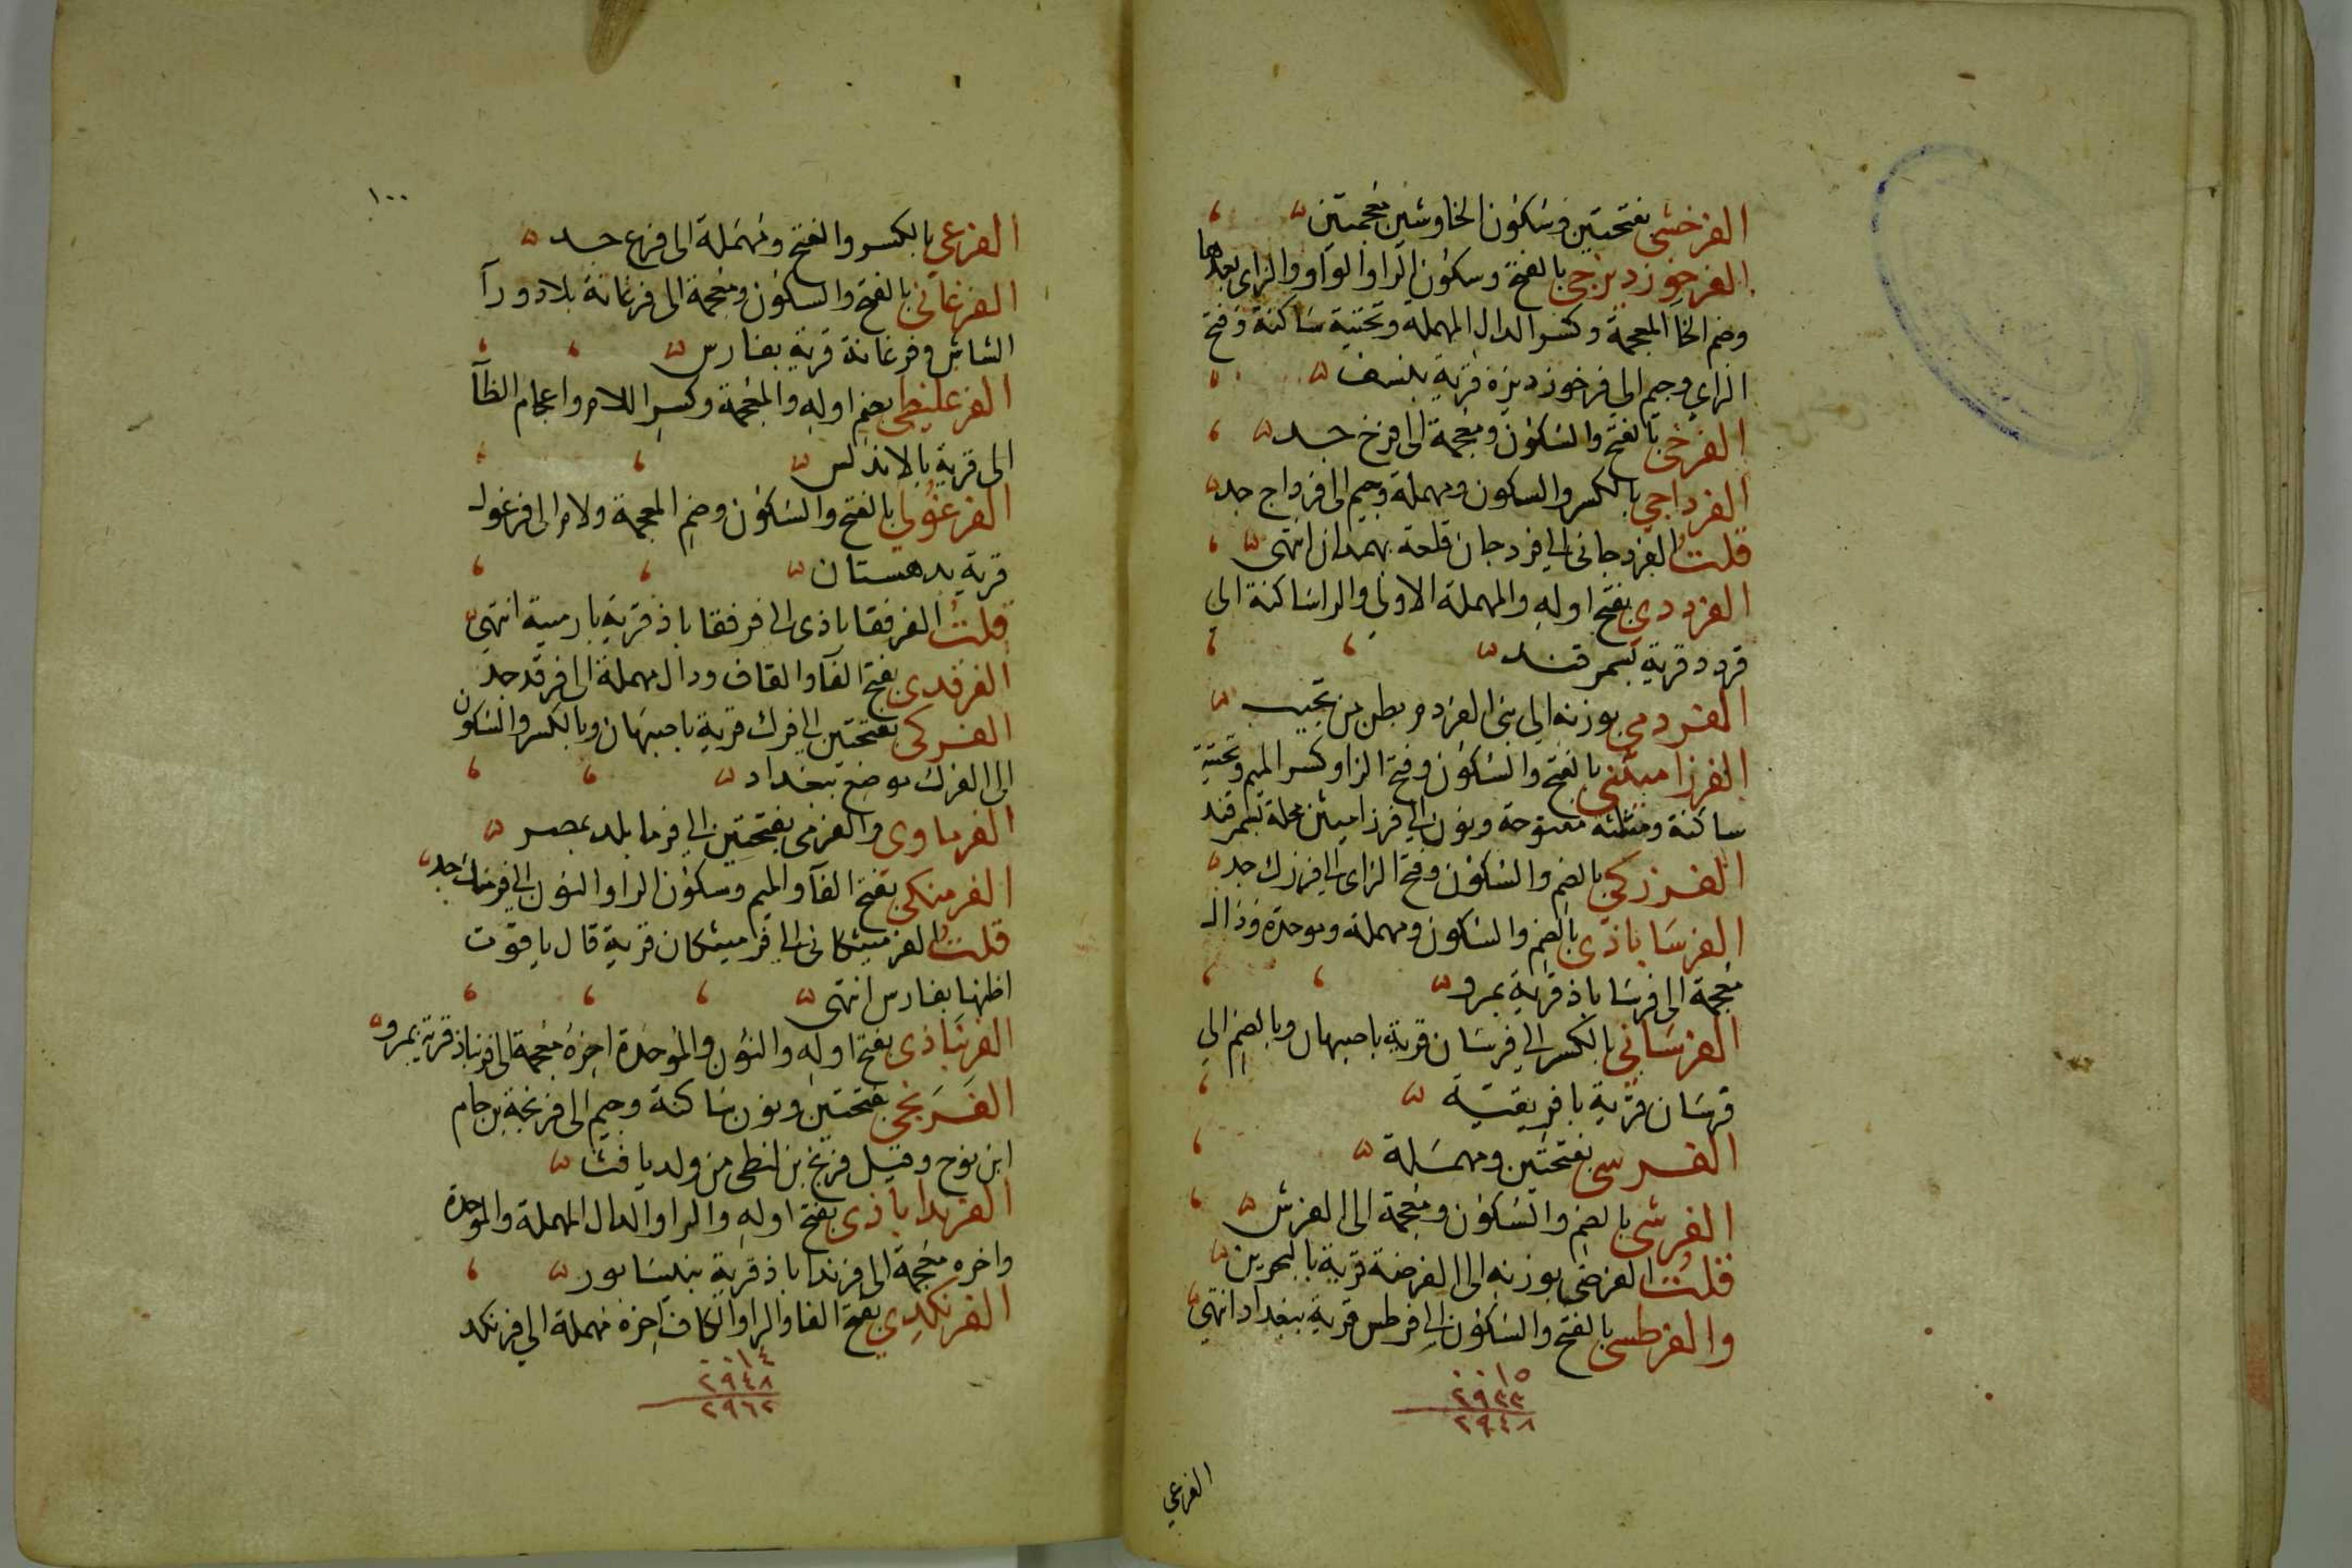 الفرخشى بفتحتين وسكون الخا وشين معجمتين
الفرخوزديزجى بالفتح وسكون الرا والواو والزاى بعدها
وضم الخا المعجمة وكسر الدال المهملة وتحتية ساكنة وفتح
الزاي وجيم الى فرخوزديزة قرية بنسف
الفرخى بالفتح والسكون ومعجمة الى فرخ جد
الفرداجي بالكسر والسكون ومهملة وجيم الى فرداج جد
قلت الفردجانى الى فردجان قلعة بهمدان انتهى
الفرددى بفتح اوله والمهملة الاولى والرا ساكنة الى
فردد قرية بسمرقند
الفردمى بوزنه الى بنى الفردم بطن من تجيب
الفرزاميثنى بالفتح والسكون وفتح الزا وكسر الميم وتحتية
ساكنة ومثلثه مفتوحة ونون الى فرزاميثن محلة بسمرقند
الفرزكى بالضم والسكون وفتح الزاى الى فرزك جد
الفرساباذى بالضم والسكون ومهملة وموحدة وذال
معجمة الى فرساباذ قرية بمرو
الفرسانى بالكسر الى فرسان قرية باصبهان وبالضم الى
فرسان قرية بافريقية
الفرسى بفتحتين ومهملة
الفرشى بالضم والسكون ومعجمة الى الفرش
قلت الفرضى بوزنه الى الفرضة قرية بالبحرين
والفرطسى بالفتح والسكون الى فرطس قرية ببغداد انتهى
٠٠١٥
٢٩٣٣
٢٩٤٨
الفرعي
١٠٠
الفرعي بالكسر والفتح ومهملة الى فرع جد
الفرغانى بالفتح والسكون ومعجمة الى فرغانة بلاد ورآ
الشاش وفرغانة قرية بفارس
الفرغليظى بضم اوله والمعجمة وكسر اللام واعجام الظآ
الى قرية بالاندلس
الفرغولى بالفتح والسكون وضم المعجمة ولام الى فرغول
قرية بدهستان
قلت الفرفقاباذى الى فرفقاباذ قرية بارمية انتهى
الفرقدى بفتح الفآ والقاف ودال مهملة الى فرقد جد
الفركى بفتحتين الى فرك قرية باصبهان وبالكسر والسكون
الى الفرك موضع ببغداد
الفرماوى والفرمى بفتحتين الى فرما بلد بمصر
الفرمنكى بفتح الفآ والميم وسكون الرا والنون الى فرمنك جد
قلت الفرميثكانى الى فرميثكان قرية قال ياقوت
اظنها بفارس انتهى
الفرنباذى بفتح اوله والنون والموحدة اخره معجمة الى فرنباذ قرية بمرو
الفرنجى بفتحتين ونون ساكنة وجيم الى فرنجة بن حام
ابن نوح وقيل فرنج بن لنطى من ولد يافث
الفرنداباذى بفتح اوله والرا والدال المهملة والموحدة
واخره معجمة الى فرنداباذ قرية بنيسابور
الفرنكدى بفتح الفا والرا والكاف اخره مهملة الى فرنكد
٠٠١٤
٢٩٤٨
٢٩٦٢